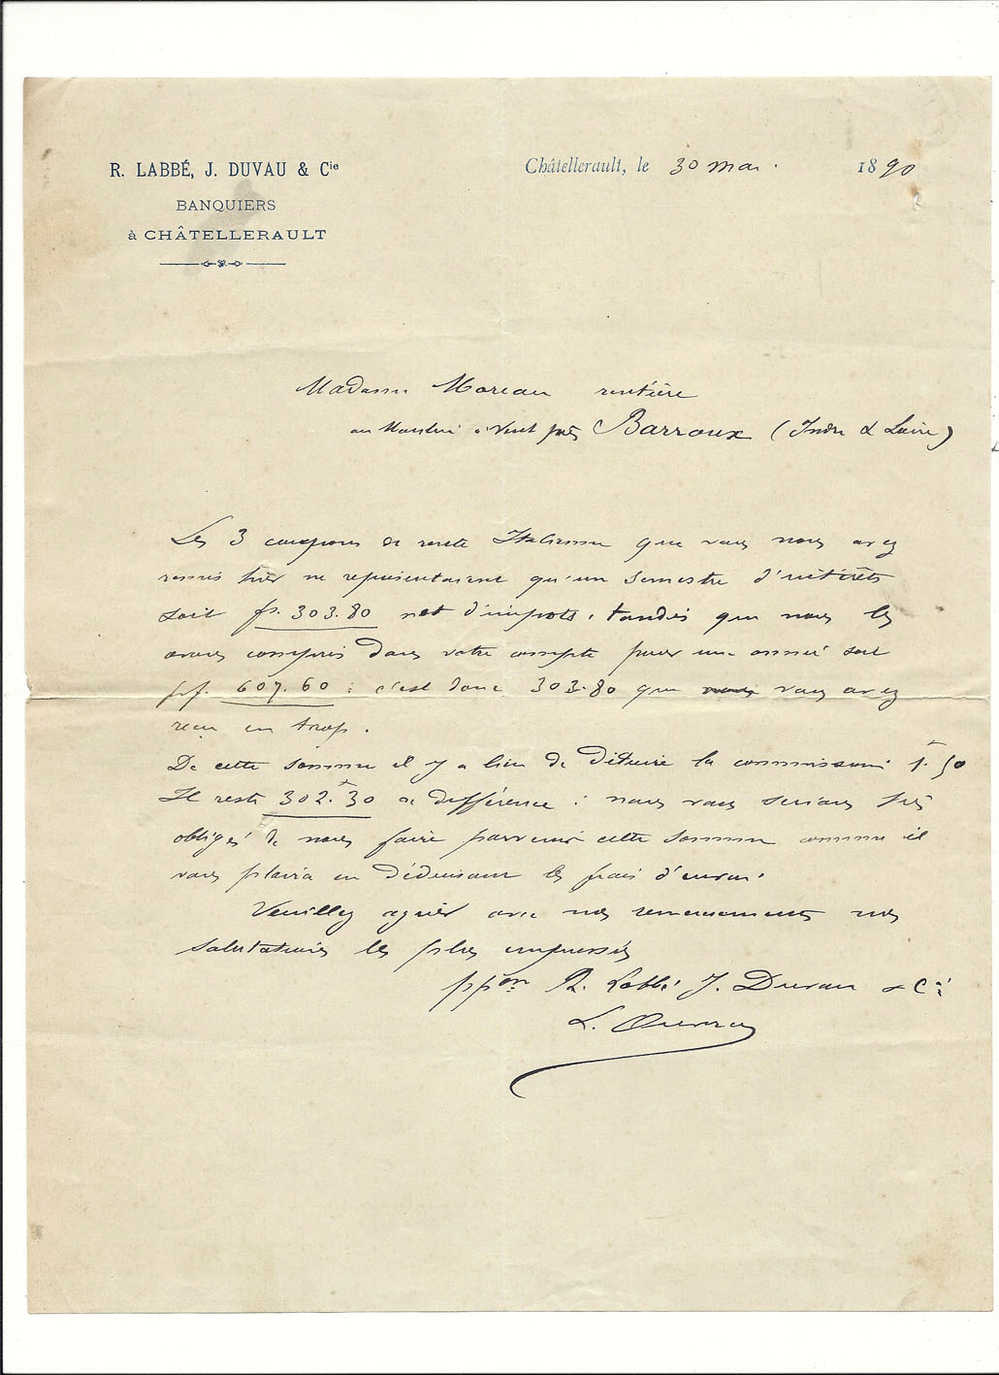 R. LABBÉ, J. DUVAU & Cie
BANQUIERS
à CHÂTELLERAULT
Châtellerault, le 30 mai 1890
Madame Moreau rentière
au Moulin à Vent près Barroux (Indre & Loire)
Les 3 coupons de rente Italienne que vous nous avez
remis hier ne représentaient qu'un semestre d'intérêts
soit fr. 303.80 net d'impots, tandis que nous les
avons compris dans votre compte pour une année soit
fr. 607.60 : c'est donc 303.80 que vous avez
reçu en trop.
De cette somme il y a lieu de déduire la commission 1.50
Il reste 302.30 de différence : nous vous serions très
obligés de nous faire parvenir cette somme comme il
vous plaira en déduisant les frais d'envoi.
Veuillez agréer avec nos remerciements nos
salutations les plus empressées
ppon R. Labbé J. Duvau & Cie
L.